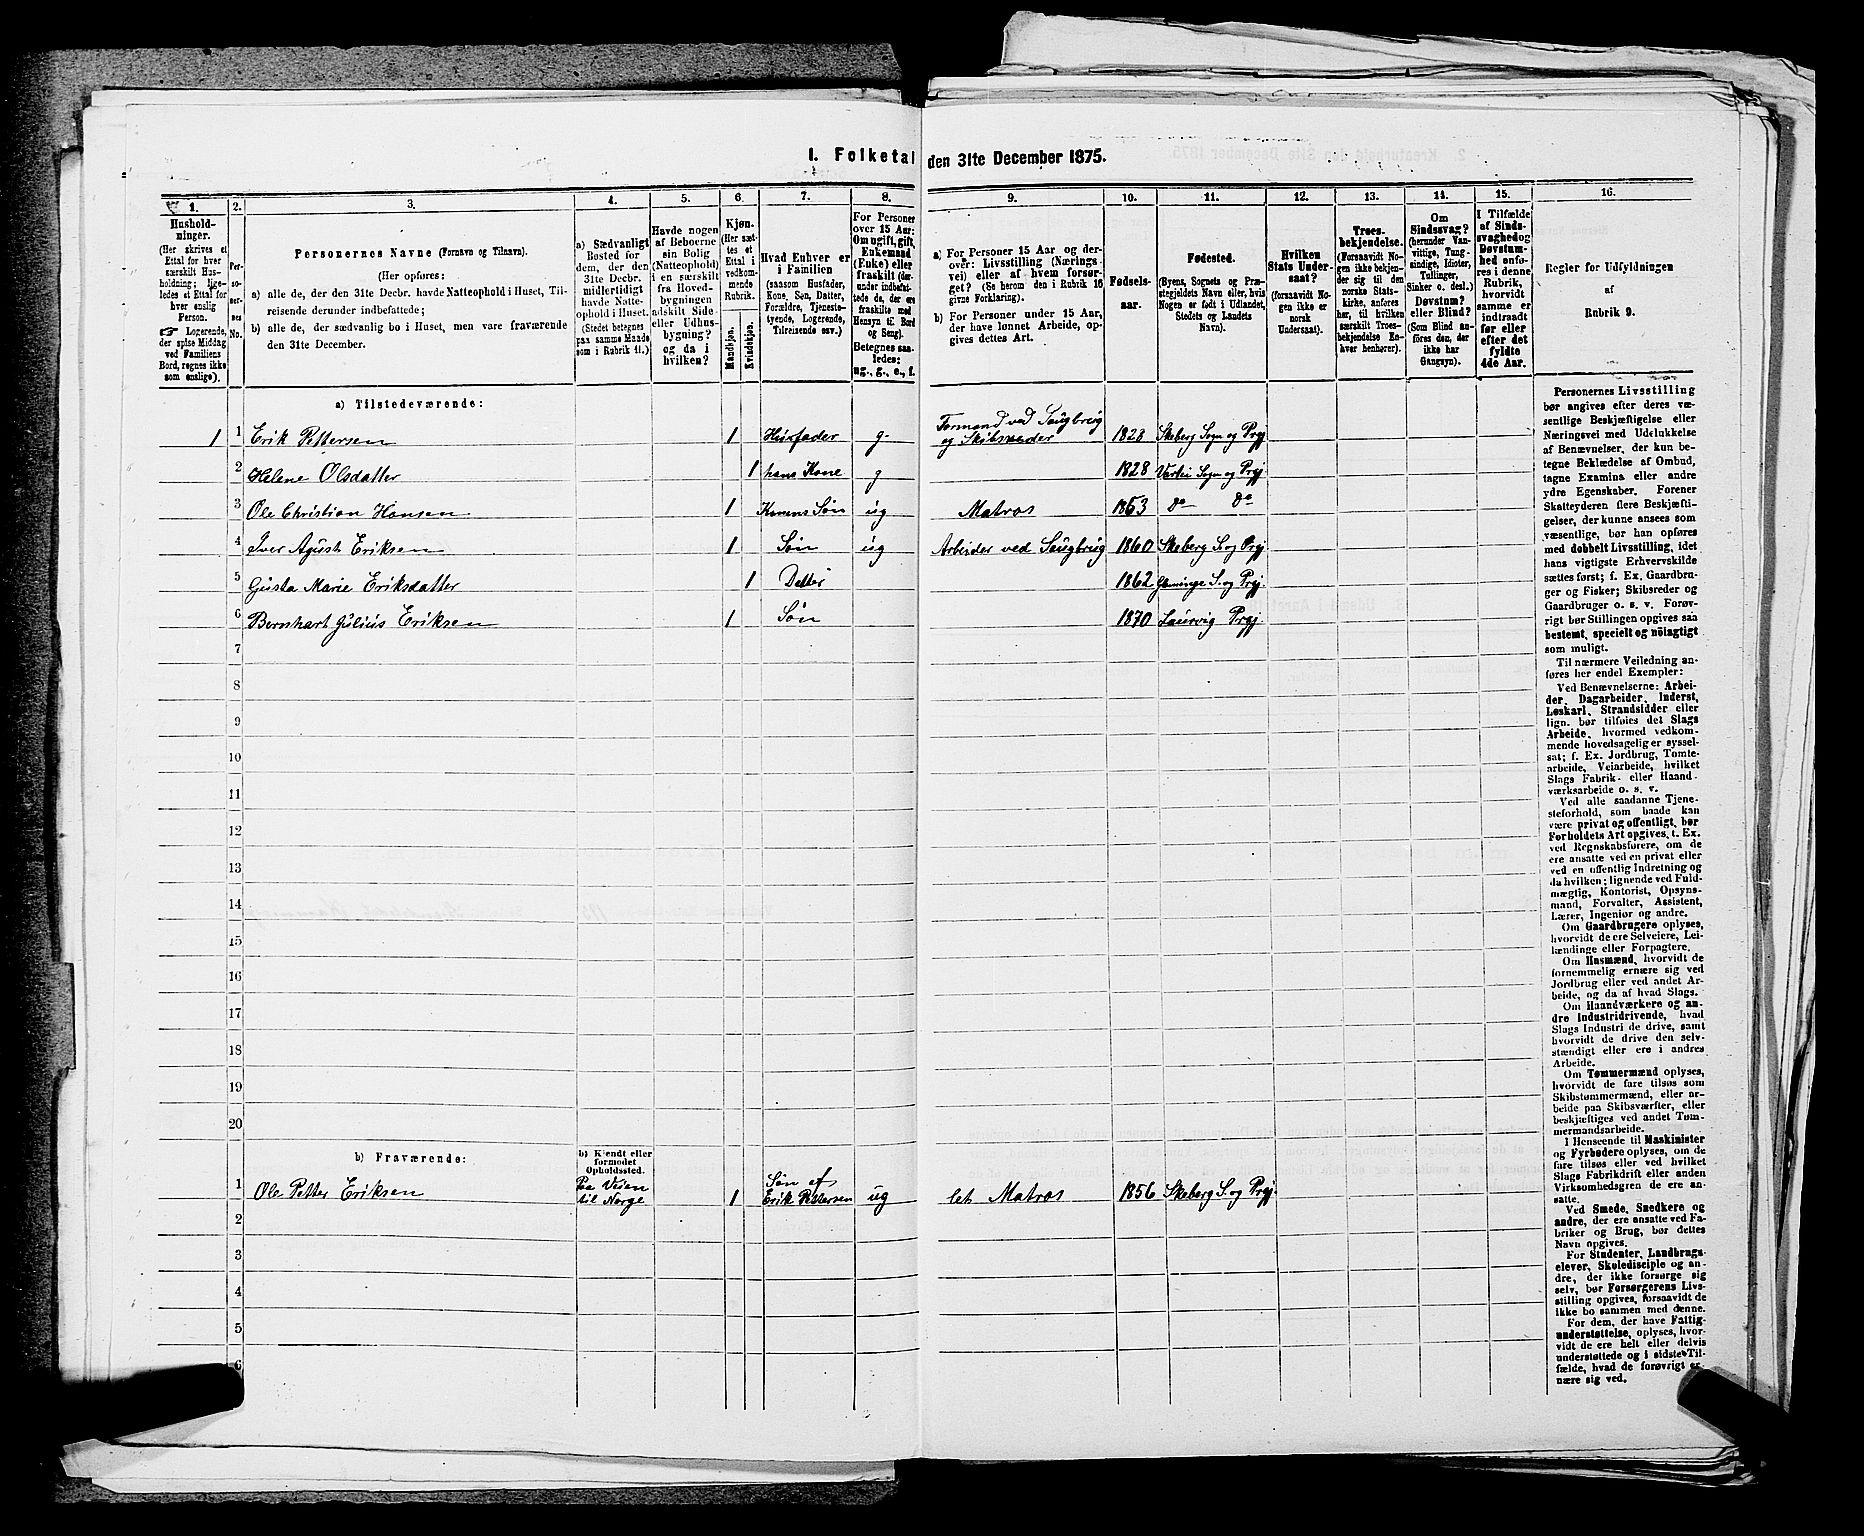 1. Folketal den 31te December 1875.
1. 2. 3. 4. 5. 6. 7. 8. 9. 10. 11. 12. 13. 14. 15. 16.
Hushold-
ninger.
(Her skrives et
Ettal for hver
særskilt Hus-
holdning; lige-
ledes et Ettal for
hver enslig
Person.
☞ Logerende,
der spise Middag
ved Familiens
Bord, regnes ikke
som enslige).
Per-
so-
ner-
nes
No.
Personernes Navne (Fornavn og Tilnavn).
(Her opføres:
a) alle de, der den 31te Decbr. havde Natteophold i Huset, Til-
reisende derunder indbefattede;
b) alle de, der sædvanlig bo i Huset, men vare fraværende
den 31te December.
a) Sædvanligt
Bosted for
dem, der den
31te Decbr.
midlertidigt
havde Natte-
ophold i Huset.
(Stedet betegnes
paa samme Maade
som i Rubrik 11.)
Havde nogen
af Beboerne
sin Bolig
(Natteophold)
i en særskilt
fra Hoved-
bygningen
adskilt Side-
eller Udhus-
bygning?
og da i
hvilken?
Kjøn.
(Her sæt-
tes et
Ettal i
vedkom-
mende
Rubrik.
Mandkjøn.
Kvindekjøn.
Hvad Enhver er
i Familien
(saasom Husfader,
Kone, Søn, Datter,
Forældre, Tjeneste-
tyende, Logerende,
Tilreisende osv.)
For Personer
over 15 Aar:
Om ugift, gift,
Enkemand
(Enke) eller
fraskilt (der-
under indbefat-
tede de, der ere
fraskilte med
Hensyn til Bord
og Seng).
Betegnes saa-
ledes:
ug., g., e., f.
a) For Personer 15 Aar og der-
over: Livsstilling (Nærings-
vei) eller af hvem forsør-
get? (Se herom den i Rubrik 16
givne Forklaring).
b) For Personer under 15 Aar,
der have lønnet Arbeide, op-
gives dettes Art.
Fødsels-
aar.
Fødested.
(Byens, Sognets og Præ-
stegjeldets Navn eller, hvis
Nogen er født i Udlandet,
Stedets og Landets
Navn).
Hvilken
Stats Under-
saat?
(forsaavidt No-
gen ikke er
norsk
Undersaat).
Troes-
bekjendelse.
(Forsaavidt No-
gen ikke bekjen-
der sig til den
norske Stats-
kirke, anføres
her, til hvilken
særskilt Troes-
bekjendelse En-
hver henhører).
Om
Sindssvag?
(herunder Van-
vittige, Tung-
sindige, Idioter,
Tullinger,
Sinker o. desl.)
Døvstum?
eller Blind?
(Som Blind an-
føres den, der
ikke har
Gangsyn).
I Tilfælde
af Sinds-
svaghed og
Døvstum-
hed anfø-
res i denne
Rubrik,
hvorvidt
samme er
indtraadt
før eller
efter det
fyldte
4de Aar.
Regler for Udfyldningen
af
Rubrik 9.
a) Tilstedeværende:
Formand ved Saugbrug
1 1 Erik Pettersen 1 Husfader g. og Skibsreder 1828 Skeberg Sogn og Prgj
2 Helene Olsdatter 1 hans Kone g 1828 Sogn og Prgj
3 Ole Christian Hansen 1 Konens Søn ug Matros 1853 do do
4 Iver Agust Eriksen 1 Søn ug Arbeider ved Saugbrug 1860 Skeberg S. og Prgj.
5 Gusta Marie Eriksdatter 1 Datter 1862 Glemminge S. og Prgj.
6 Bernhart Julius Eriksen 1 Søn 1870 Laurvig Prgj.
7
8
9
10
11
12
13
14
15
16
17
18
19
20
b) Fraværende:
b) Kjendt eller
formodet
Opholdssted.
Paa Veien Søn af
1 Ole Petter Eriksen til Norge 1 Erik Pettersen ug let Matros 1856 Skeberg S. og Prgj.
2
3
4
5
6
Personernes Livsstilling
bør angives efter deres væ-
sentlige Beskjæftigelse eller
Næringsvei med Udelukkelse
af Benævnelser, der kun be-
tegne Beklædelse af Ombud,
tagne Examina eller andre
ydre Egenskaber. Forener
Skatteyderen flere Beskjæfti-
gelser, der kunne ansees som
væsentlige, bør han opføres
med dobbelt Livsstilling, idet
hans vigtigste Erhvervskilde
sættes først; f. Ex. Gaardbru-
ger og Fisker; Skibsreder og
Gaardbruger o. s. v. Forøv-
rigt bør Stillingen opgives saa
bestemt, specielt og nøiagtigt
som muligt.
Til nærmere Veiledning an-
føres her endel Exempler:
Ved Benævnelserne: Arbei-
der, Dagarbeider, Inderst,
Løskarl, Strandsidder eller
lign. bør tilføies det Slags
Arbeide, hvormed vedkom-
mende hovedsagelig er syssel-
sat; f. Ex. Jordbrug, Tomte-
arbeide, Veiarbeide, hvilket
Slags Fabrik- eller Haand-
værksarbeide o. s. v.
Ved alle saadanne Tjene-
steforhold, som baade kan
være privat og offentligt, bør
Forholdets Art opgives, t. Ex.
ved Regnskabsførere, om de
ere ansatte ved en privat eller
ved en offentlig Indretning og
da hvilken; lignende ved Fuld-
mægtig, Kontorist, Opsyns-
mand, Forvalter, Assistent,
Lærer, Ingeniør og andre.
Om Gaardbrugere oplyses,
hvorvidt de ere Selveiere, Lei-
lændinge eller Forpagtere.
Om Husmænd, hvorvidt de
fornemmelig ernære sig ved
Jordbrug eller ved andet Ar-
beide, og da af hvad Slags.
Om Haandværkere og an-
dre Industridrivende, hvad
Slags Industri de drive, samt
hvorvidt de drive den selv-
stændigt eller ere i andres
Arbeide.
Om Tømmermænd oplyses,
hvorvidt de fare tilsøs som
Skibstømmermænd, eller ar-
beide paa Skibsværfter, eller
beskjæftiges ved andet Tøm-
mermandsarbeide.
I Henseende til Maskinister
og Fyrbødere oplyses, om de
fare tilsøs eller ved hvilket
Slags Fabrikdrift eller anden
Virksomhedsgren de ere an-
satte.
Ved Smede, Snedkere og
andre, der ere ansatte ved Fa-
briker og Brug, bør dettes
Navn opgives.
For Studenter, Landbrugs-
elever, Skoledisciple og an-
dre, der ikke forsørge sig
selv, bør Forsørgerens Livs-
stilling opgives, forsaavidt de
ikke bo sammen med denne.
For dem, der have Fattig-
understøttelse, oplyses, hvor-
vidt de ere helt eller delvis
understøttede og i sidste Til-
fælde, hvad de forøvrigt er-
nære sig ved.